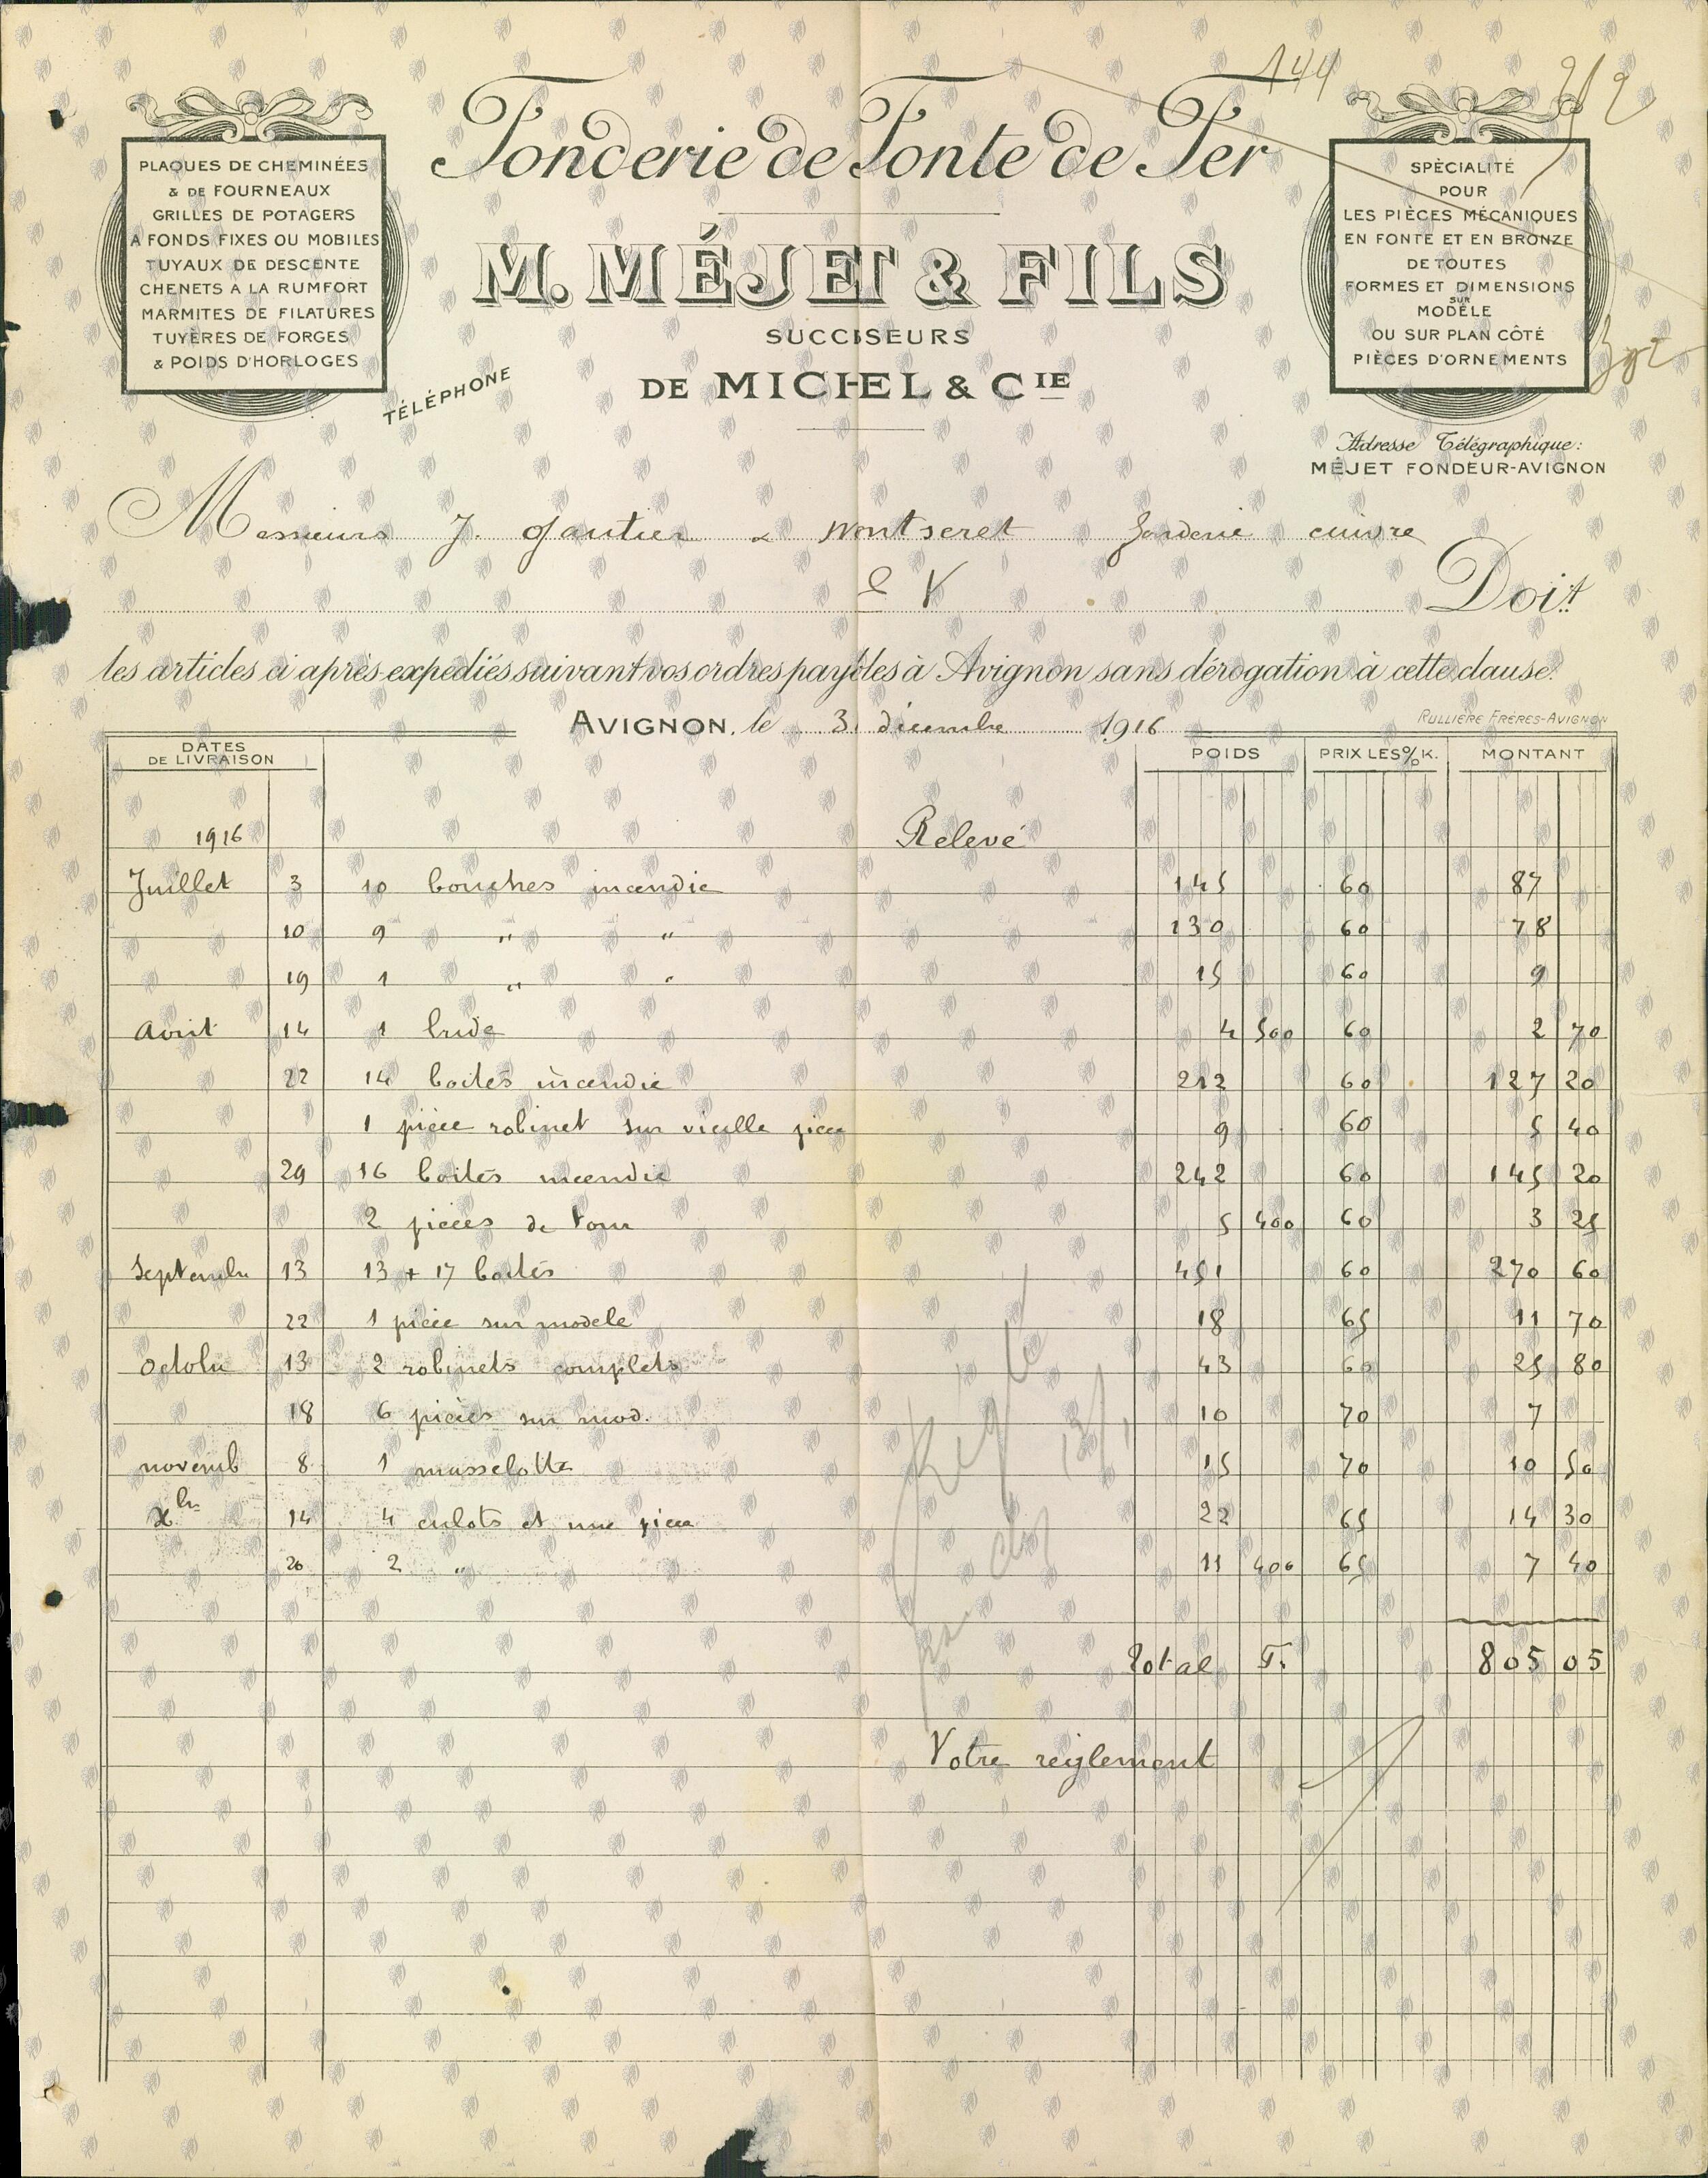 144
PLAQUES DE CHEMINÉES
& DE FOURNEAUX
GRILLES DE POTAGERS
A FONDS FIXES OU MOBILES
TUYAUX DE DESCENTE
CHENETS A LA RUMFORT
MARMITES DE FILATURES
TUYÈRES DE FORGES
& POIDS D'HORLOGES
TÉLÉPHONE
Fonderie de Fonte de Fer
M. MÉJET & FILS
SUCCISEURS
DE MICHEL & CIE
SPÈCIALITÉ
POUR
LES PIÈCES MÉCANIQUES
EN FONTE ET EN BRONZE
DE TOUTES
FORMES ET DIMENSIONS
SUR
MODÈLE
OU SUR PLAN CÔTÉ
PIÈCES D'ORNEMENTS
Adresse Télégraphique:
MÉJET FONDEUR-AVIGNON
Messieurs J. Gautier & Montseret fonderie cuivre
E V Doit
les articles ci après expédiés suivant vos ordres payables à Avignon sans dérogation à cette clause.
AVIGNON, le 31 décembre 1916
RULLIÈRE FRÈRES-AVIGNON
DATES DE LIVRAISON POIDS PRIX LES % K. MONTANT
1916 Relevé
Juillet 3 10 bouches incendie 145 60 87
10 9 " " 130 60 78
19 1 " " 15 60 9
Aout 14 1 bride 4 500 60 2 70
22 14 boites incendie 212 60 127 20
1 pièce robinet sur vieille pièce 9 60 5 40
29 16 boites incendie 242 60 145 20
2 pièces de tour 5 400 60 3 25
Septembre 13 13 + 17 boites 451 60 270 60
22 1 pièce sur modele 18 65 11 70
Octobre 13 2 robinets complets 43 60 25 80
18 6 pièces sur mod. 10 70 7
novemb 8 1 masselotte 15 70 10 50
Xbre 14 4 culots et une pièce 22 65 14 30
20 2 " 11 400 65 7 40
Total F. 805 05
Réglé
Votre reiglement